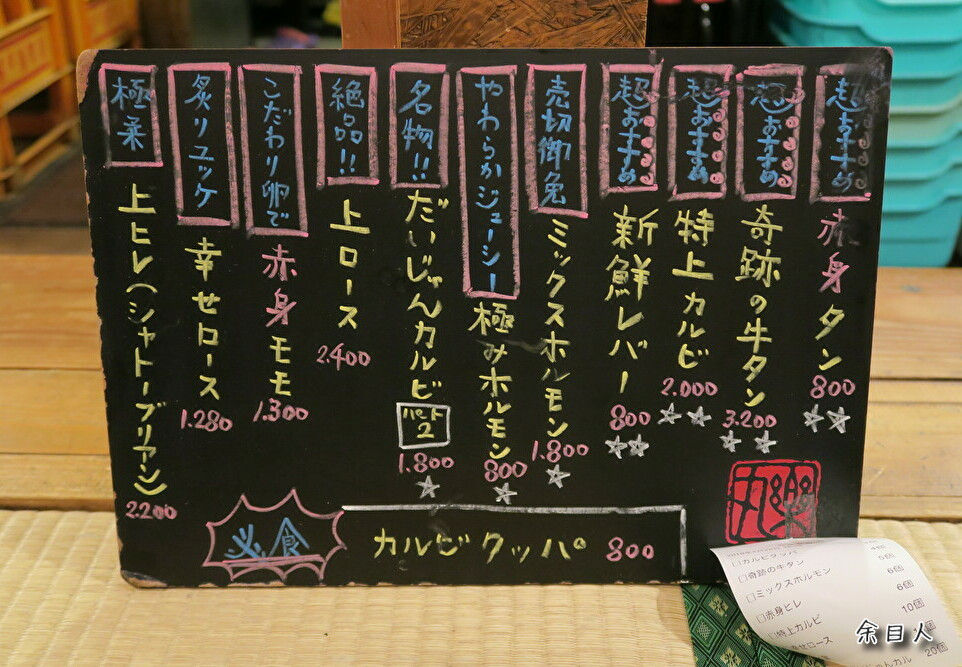 超おすすめ
赤身タン
800
☆☆
超おすすめ
奇跡の牛タン
3.200
☆☆
超おすすめ
特上カルビ
2.000
☆☆
超おすすめ
新鮮レバー
800
☆☆
売切御免
ミックスホルモン
1.800
☆
やわらかジューシー
極みホルモン
800
☆
名物!!
だいじゃんカルビ
パート2
1.800
☆
絶品!!
上ロース
2.400
こだわり卵で
赤身モモ
1.300
炙りユッケ
幸せロース
1.280
極柔
上ヒレ(シャトーブリアン)
2.200
必食
カルビクッパ 800
□カルビクッパ 4個
□奇跡の牛タン 5個
□ミックスホルモン 6個
□赤身ヒレ 6個
□特上カルビ 10個
せロース
カル 20個
余目人